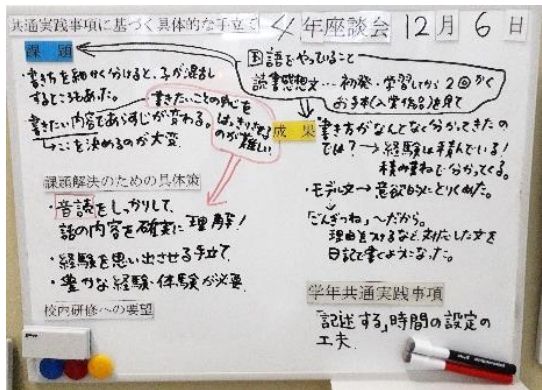 共通実践事項に基づく具体的な手立て 4年座談会 12月6日
課題
・書き方を細かく分けると、子が混乱
するところもあった。
書きたい内容であらすじが変わる。
→ここを決めるのが大変
書きたいことの中心を
はっきりさせる
のが難しい
国語でやっていること
読書感想文…初発・学習してから2回かく
お手本(入賞作品)を見て
成果
・書き方がなんとなく分かってきたの
では?→経験は積んでいる!
積み重ねで分かってくる。
・モデル文→意欲的にとりくめた。
「ごんぎつね」~だから。
理由をつけるなど、対応した文を
日記で書くようになった。
課題解決のための具体策
・音読をしっかりして、
話の内容を確実に理解!
・経験を思い出させる手立て
・豊かな経験・体験が必要
校内研修への要望
学年共通実践事項
「記述する」時間の設定の
工夫